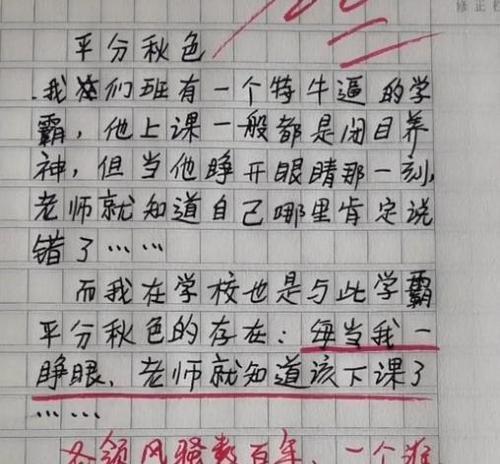 平分秋色
我们班有一个特牛逼的学
霸，他上课一般都是闭目养
神，但当他睁开眼睛那一刻，
老师就知道自己哪里肯定说
错了……
而我在学校也是与此学霸
平分秋色的存在：每当我一
睁眼，老师就知道该下课了
……
各领风骚数百年，一个